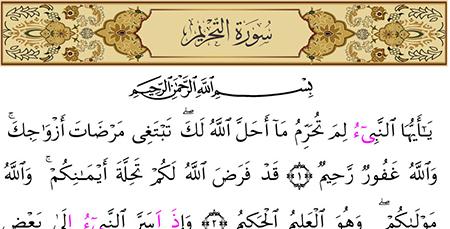 سُورَةُ التَّحْرِيمِ
بِسْمِ اللَّهِ الرَّحْمَٰنِ الرَّحِيمِ
يَـٰٓأَيُّهَا النَّبِىٓءُ لِمَ تُحَرِّمُ مَآ أَحَلَّ اللَّهُ لَكَ ۖ تَبْتَغِى مَرْضَاتَ أَزْوَٰجِكَ ۚ
وَاللَّهُ غَفُورٌ رَّحِيمٌ ﴿١﴾ قَدْ فَرَضَ اللَّهُ لَكُمْ تَحِلَّةَ أَيْمَـٰنِكُمْ ۚ وَاللَّهُ
مَوْلَىٰكُمْ ۖ وَهُوَ الْعَلِيمُ الْحَكِيمُ ﴿٢﴾ وَإِذَ اَسَرَّ النَّبِىٓءُ اِلَىٰ بَعْضِ